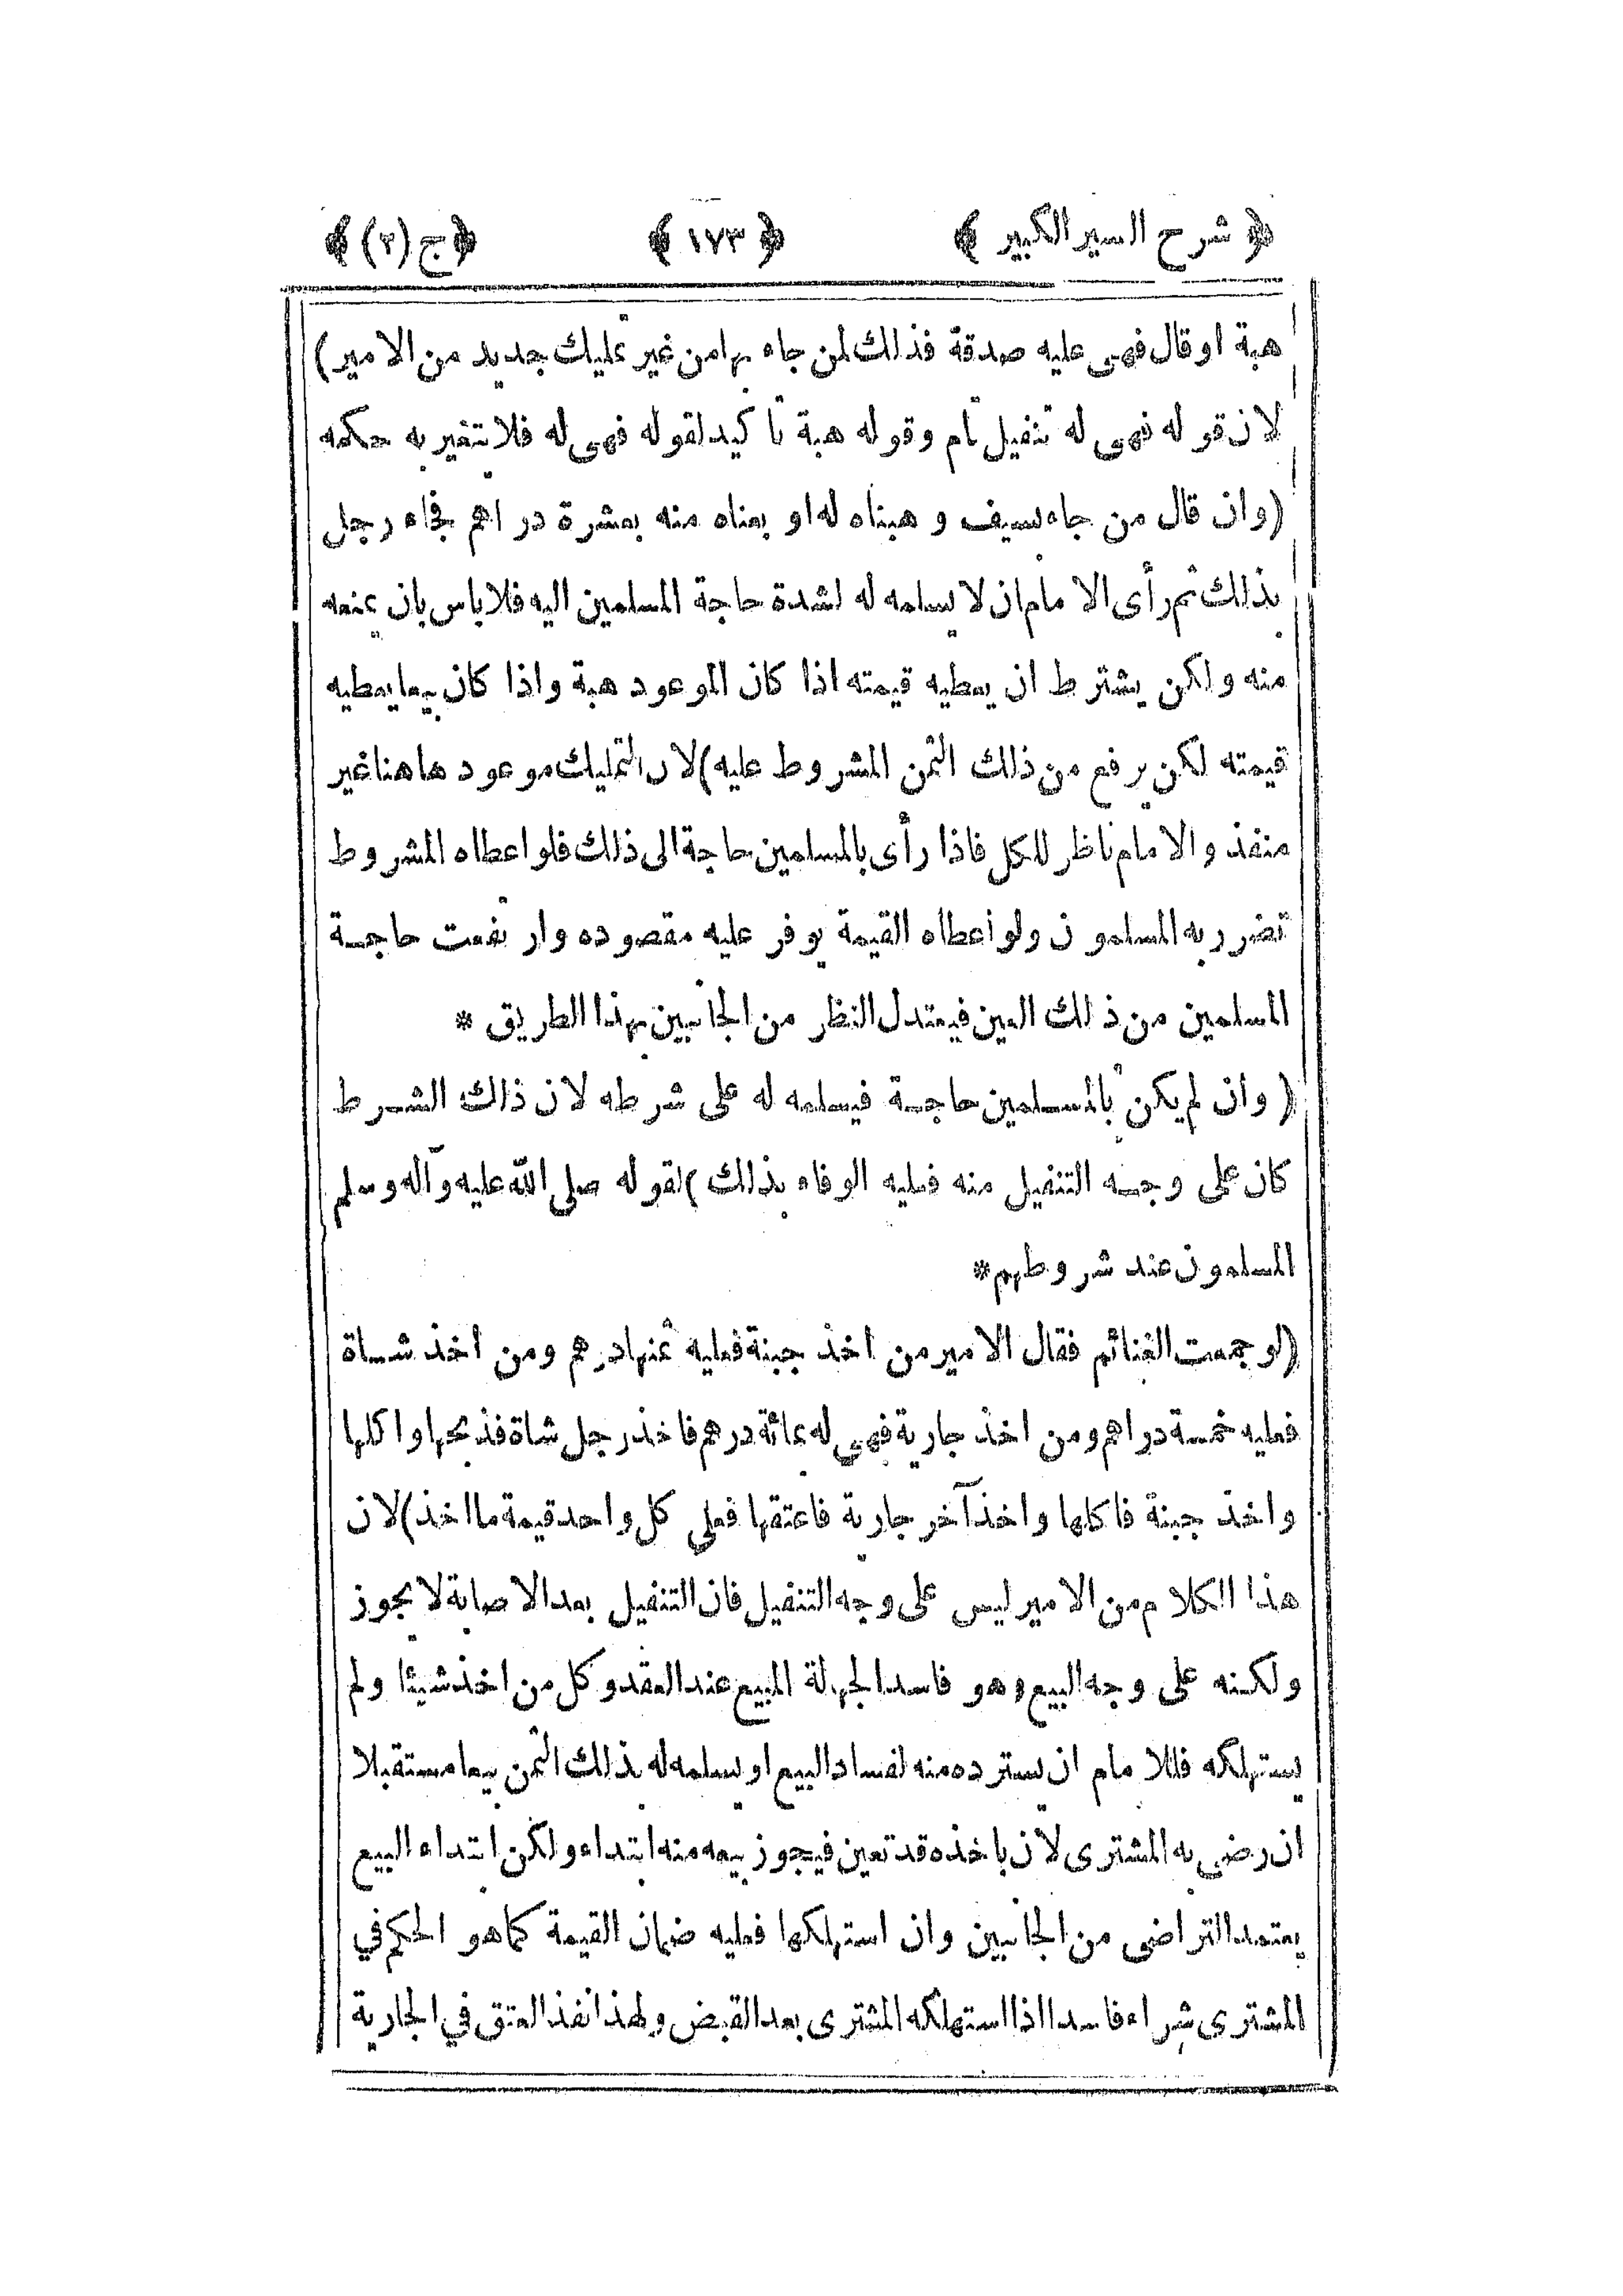 ﴿ شرح السير الكبير ﴾ ﴿ ١٧٣ ﴾ ﴿ ج (٢) ﴾
هبة او قال فهى عليه صدقة فذلك لمن جاء بها من غير تمليك جديد من الامير)
لان قوله فهى له تنفيل تام وقوله هبة تاكيد لقوله فهى له فلا يتغير به حكمه
(وان قال من جاء بسيف وهبناه له او بعناه منه بعشرة دراهم فجاء رجل
بذلك ثم رأى الامام ان لا يسلمه له لشدة حاجة المسلمين اليه فلا باس بان يمنعه
منه ولكن يشترط ان يعطيه قيمته اذا كان الموعود هبة واذا كان بيعا يعطيه
قيمته لكن يرفع من ذلك الثمن المشروط عليه) لان التمليك موعود هاهنا غير
منفذ والامام ناظر للكل فاذا رأى بالمسلمين حاجة الى ذلك فلو اعطاه المشروط
تضرر به المسلمون ولو اعطاه القيمة يوفر عليه مقصوده وارتفعت حاجة
المسلمين من ذلك العين فيعتدل النظر من الجانبين بهذا الطريق *
( وان لم يكن بالمسلمين حاجة فيسلمه له على شرطه لان ذلك الشرط
كان على وجه التنفيل منه فعليه الوفاء بذلك) لقوله صلى الله عليه وآله وسلم
المسلمون عند شروطهم*
(لو جمعت الغنائم فقال الامير من اخذ جبنة فعليه ثمنها درهم ومن اخذ شاة
فعليه خمسة دراهم ومن اخذ جارية فهى له بمائة درهم فاخذ رجل شاة فذبحها واكلها
واخذ جبنة فاكلها واخذ آخر جارية فاعتقها فعلى كل واحد قيمة ما اخذ) لان
هذا الكلام من الامير ليس على وجه التنفيل فان التنفيل بعد الاصابة لا يجوز
ولكنه على وجه البيع وهو فاسد الجهالة المبيع عند العقد وكل من اخذ شيئا ولم
يستهلكه فللامام ان يسترده منه لفساد البيع او يسلمه له بذلك الثمن بيعا مستقبلا
ان رضى به المشترى لان باخذه قد تعين فيجوز بيعه منه ابتداء ولكن ابتداء البيع
يعتمد التراضى من الجانبين وان استهلكها فعليه ضمان القيمة كما هو الحكم في
المشترى شراء فاسدا اذا استهلكه المشترى بعد القبض ولهذا نفذ العتق في الجارية